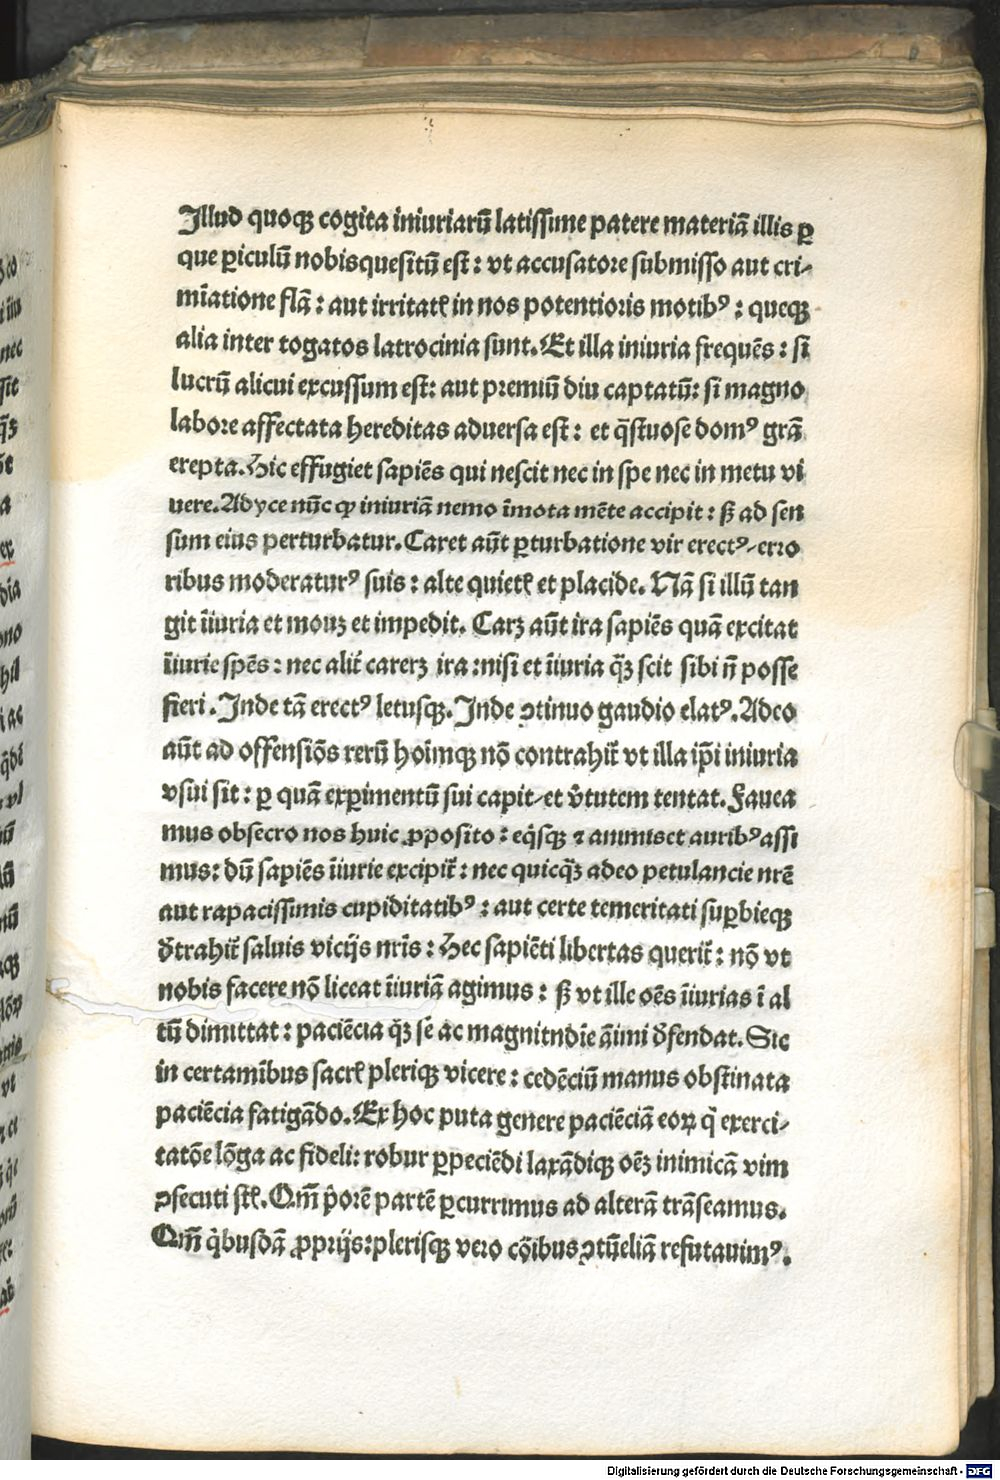 Illud quoqꝫ cogita iniuriarū latissime patere materiā illis ꝑ
que ꝑiculū nobisquesitū est : vt accusatore submisso aut cri⸗
mīatione flā : aut irritatꝭ in nos potentioris motibꝰ : queqꝫ
alia inter togatos latrocinia sunt. Et illa iniuria frequēs : si
lucrū alicui excussum est: aut premiū diu captatū: si magno
labore affectata hereditas aduersa est : et q̄stuose domꝰ grā
erepta. Hic effugiet sapiēs qui nescit nec in spe nec in metu vi
uere. Adyce nūc ꝙ iniuriā nemo īmota mēte accipit : sꝫ ad sen
sum eius perturbatur. Caret aūt ꝑturbatione vir erectꝰ⸗erro
ribus moderaturꝰ suis : alte quietꝭ et placide. Nā si illū tan
git īiuria et mouꝫ et impedit. Carꝫ aūt ira sapiēs quā excitat
īiurie spēs : nec alit̄ carerꝫ ira :nisi et īiuria q̄ꝫ scit sibi n̄ posse
fieri . Inde tā erectꝰ letusqꝫ. Inde ꝯtinuo gaudio elatꝰ. Adeo
aūt ad offensiōs rerū hoīmqꝫ nō contrahit̄ vt illa ip̄i iniuria
vsui sit : ꝑ quā exꝑimentū sui capit⸗et v̄tutem tentat. Fauea
mus obsecro nos huic ꝓposito : eq̄sqꝫ ⁊ animiset auribꝰassi
mus: dū sapiēs īiurie excipit̄ : nec quicq̄ꝫ adeo petulancie nr̄e
aut rapacissimis cupiditatibꝰ : aut certe temeritati suꝑbieqꝫ
d̄trahit̄ saluis vicijs nr̄is : Hec sapiēti libertas querit̄ : nō vt
nobis facere nō liceat īiuriā agimus : sꝫ vt ille oēs īiurias ī al
tū dimittat : paciēcia q̄ꝫ se ac magnitndīe āimi d̄fendat. Sic
in certamībus sacrꝭ pleriqꝫ vicere : cedēciū manus obstinata
paciēcia fatigādo. Ex hoc puta genere paciēciā eoꝝ q̄ exerci⸗
tatōe lōga ac fideli: robur ꝑpeciēdi laxādiqꝫ oēꝫ inimicā vim
ꝯsecuti st̄. Qm̄ p̄orē partē ꝑcurrimus ad alterā trāseamus.
Qm̄ q̄busdā ꝓprijs:plerisqꝫ vero cōibus ꝯtūeliā refutauimꝰ.
Digitalisierung gefördert durch die Deutsche Forschungsgemeinschaft - DFG